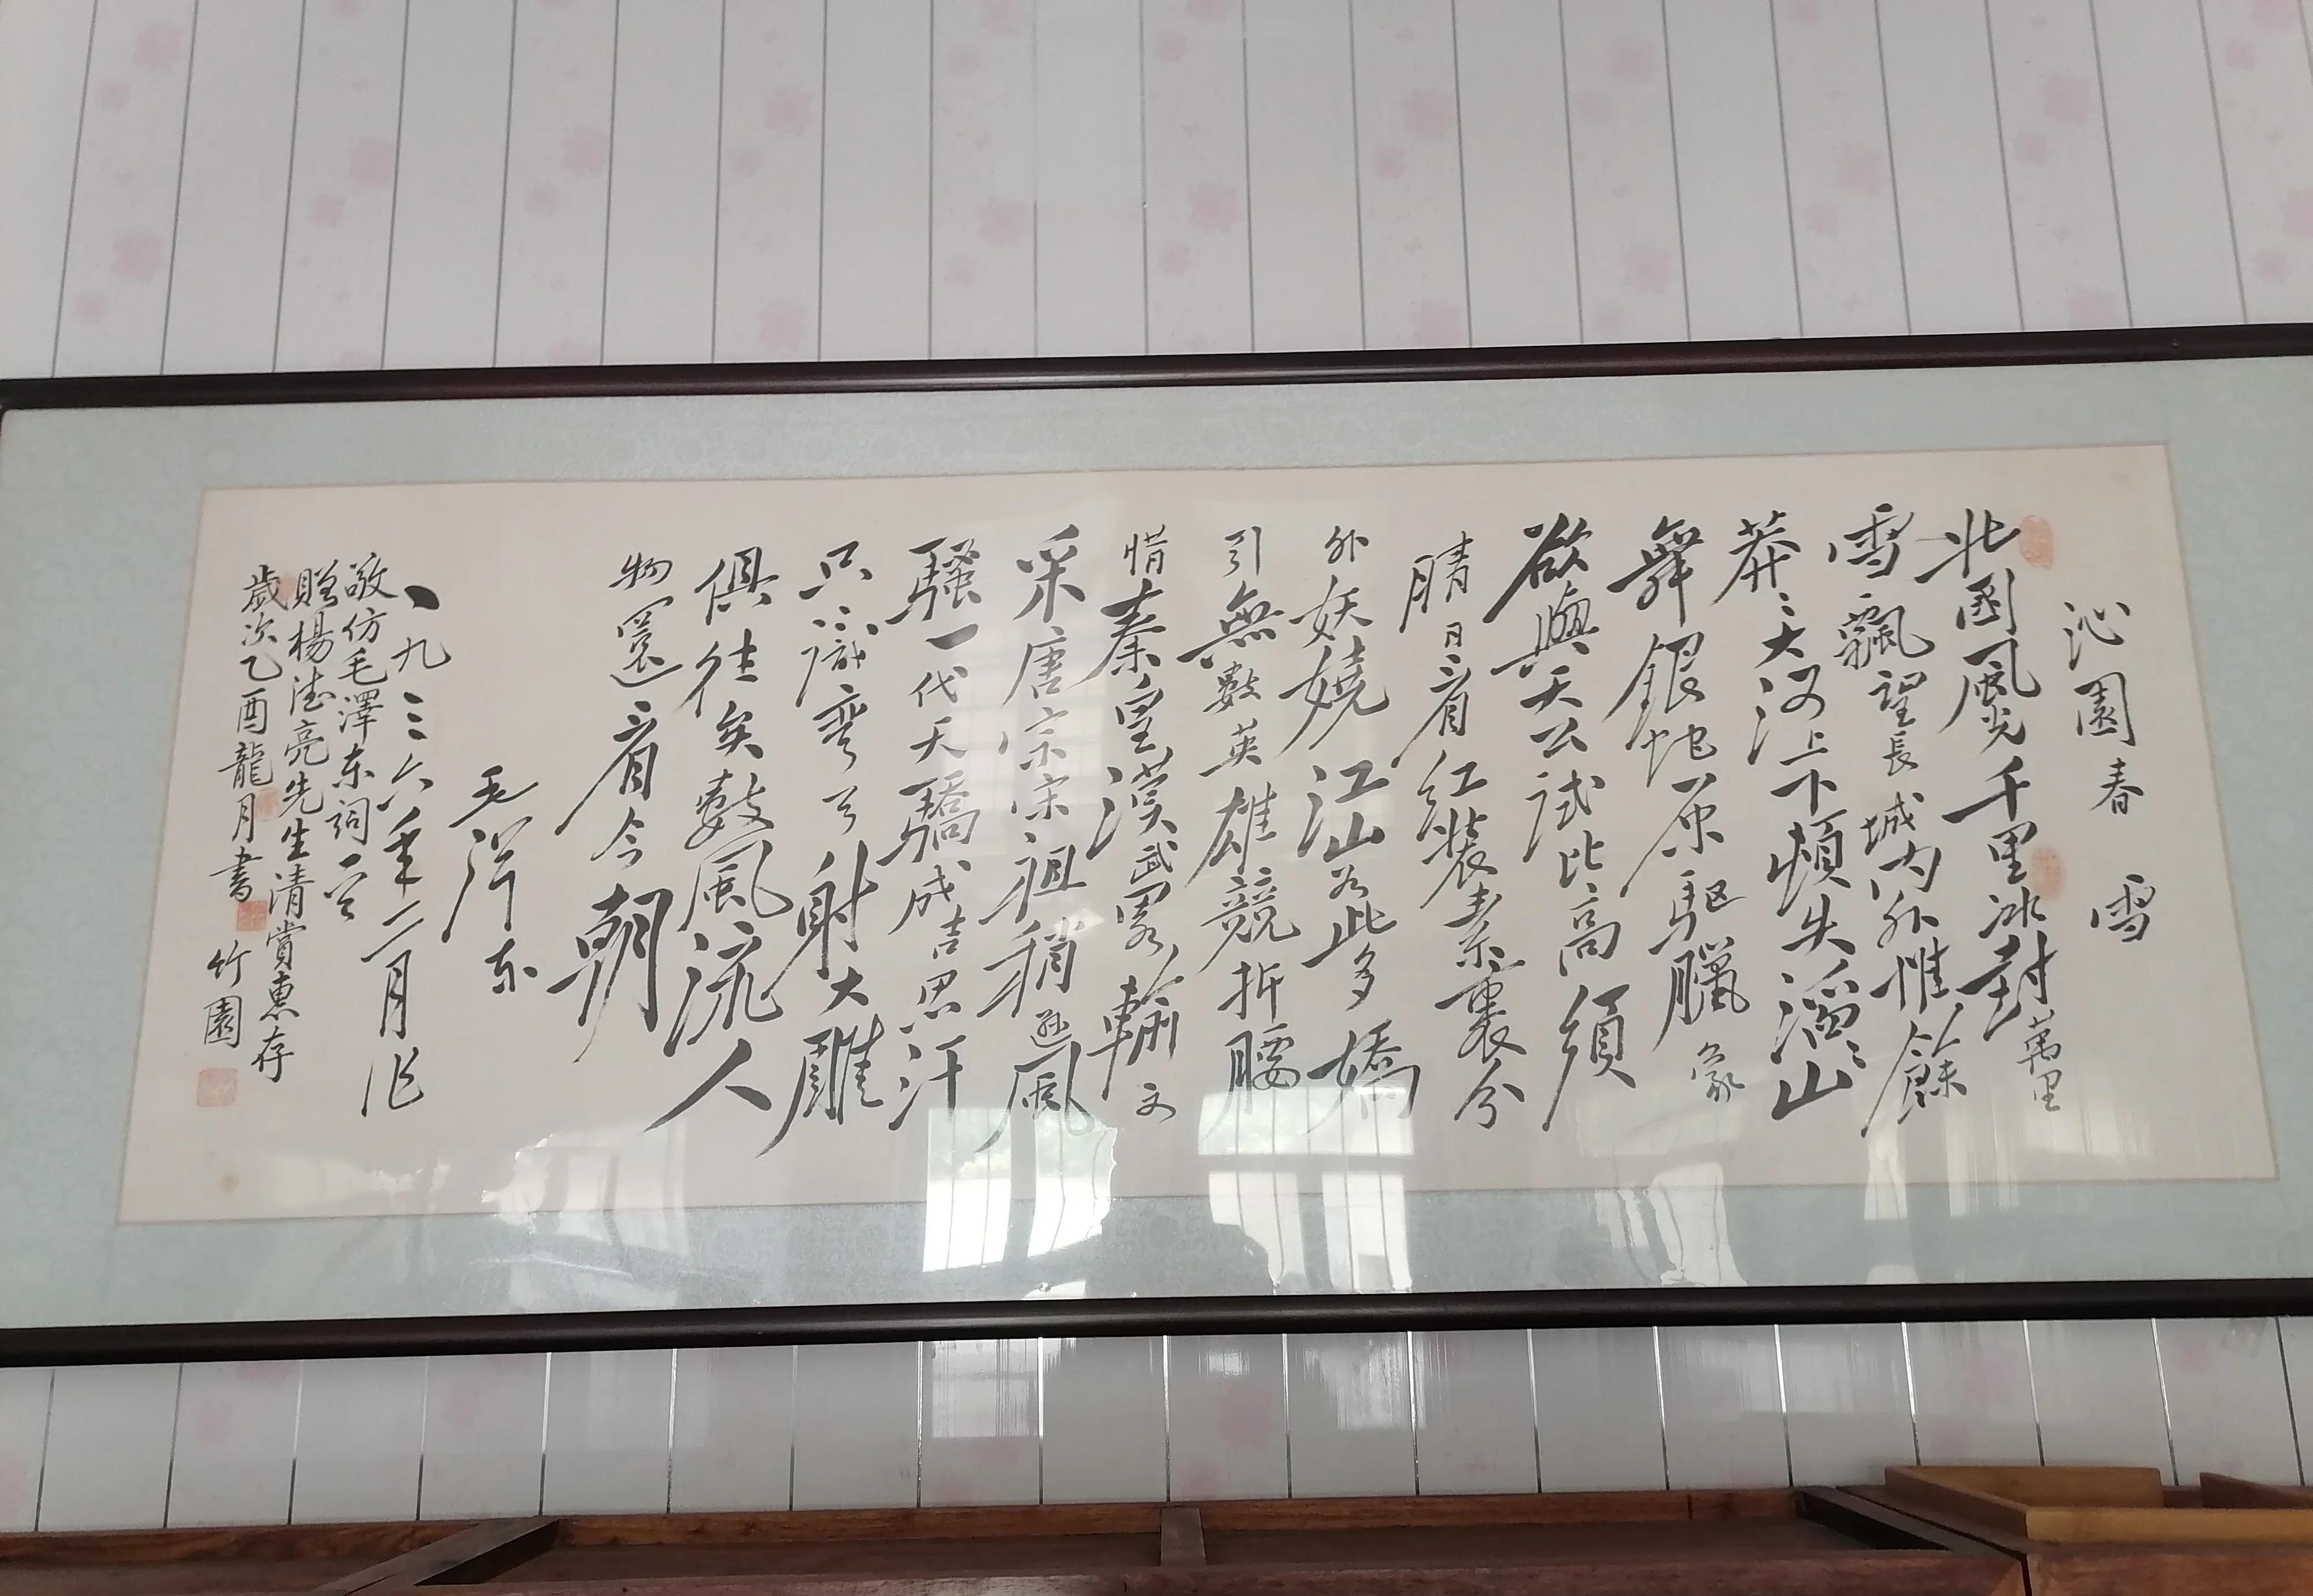 沁園春 雪
北國風光千里冰封萬里
雪飄望長城內外惟餘
莽〻大河上下頓失滔〻山
舞銀蛇原驱臘象
欲與天公試比高須
晴日看紅装素裹分
外妖嬈江山如此多嬌
引無數英雄競折腰
惜秦皇漢武畧輸文
采唐宗宋祖稍遜風
騷一代天驕成吉思汗
只識彎弓射大雕
俱往矣數風流人
物還看今朝
毛泽东
一九三六年二月作
敬仿毛澤东詞一首
贈楊德亮先生清賞惠存
歲次乙酉龍月書 竹園